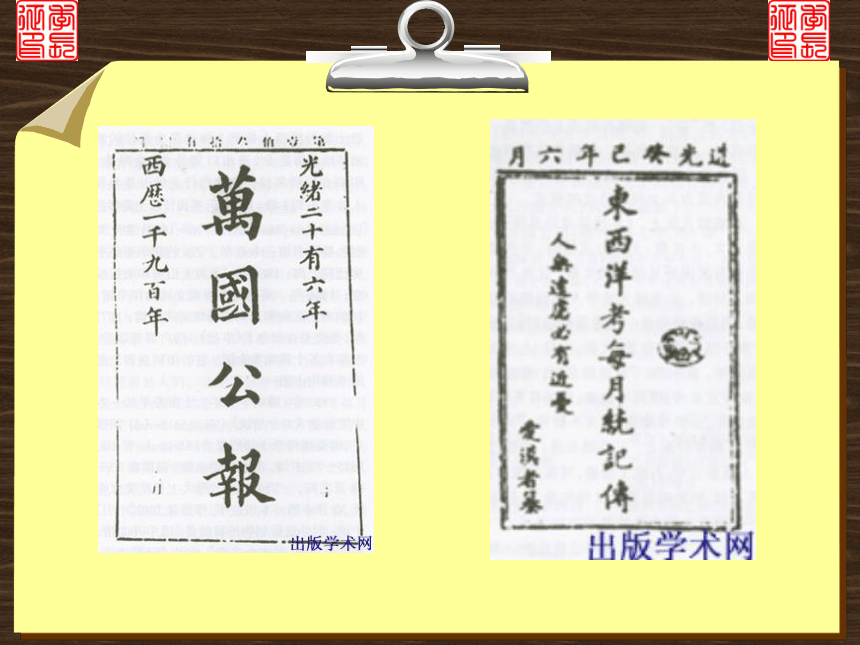 光緒二十有六年
萬國公報
西歷一千九百年
月
出版学术网
道光癸巳年六月
東西洋考每月統記傳
人無遠慮必有近憂
愛漢者纂
出版学术网